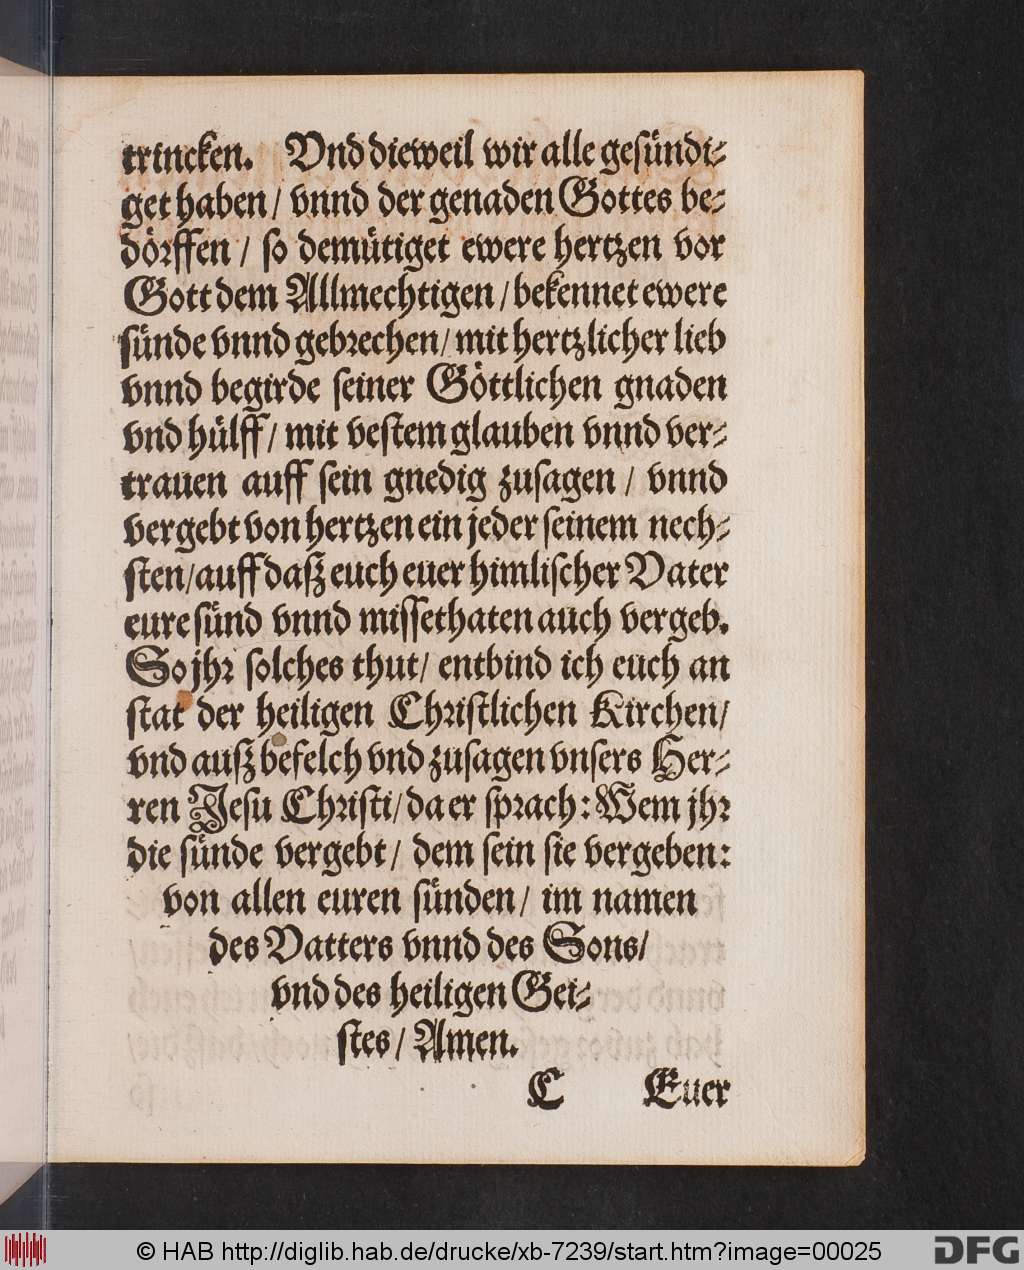 trincken. Vnd dieweil wir alle gesündi⸗
get haben / vnnd der genaden Gottes be⸗
dörffen / so demütiget ewere hertzen vor
Gott dem Allmechtigen / bekennet ewere
sünde vnnd gebrechen / mit hertzlicher lieb
vnnd begirde seiner Göttlichen gnaden
vnd hülff / mit vestem glauben vnnd ver⸗
trauen auff sein gnedig zusagen / vnnd
vergebt von hertzen ein jeder seinem nech⸗
sten / auff daß euch euer himlischer Vater
eure sünd vnnd missethaten auch vergeb.
So jhr solches thut / entbind ich euch an
stat der heiligen Christlichen Kirchen /
vnd auß befelch vnd zusagen vnsers Her⸗
ren Jesu Christi / da er sprach: Wem jhr
die sünde vergebt / dem sein sie vergeben:
von allen euren sünden / im namen
des Vatters vnnd des Sons /
vnd des heiligen Gei⸗
stes / Amen.
C Euer
© HAB http://diglib.hab.de/drucke/xb-7239/start.htm?image=00025
DFG